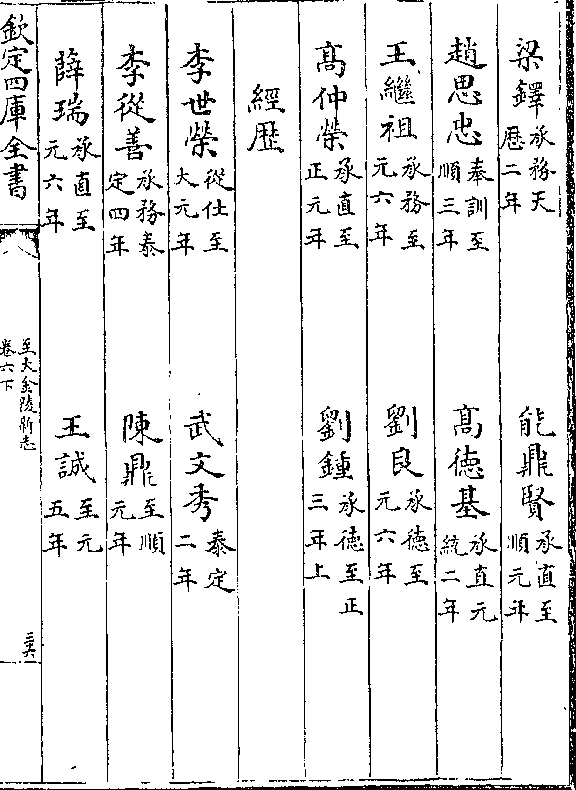 梁鐸承務天曆二年 能鼎賢承直至順元年
趙思忠奉訓至順三年 髙德基承直元統二年
王繼祖承務至元六年 劉良承德至元六年
髙仲榮承直至正元年 劉鍾承德至正三年上
經歷
李世榮從仕至大元年 武文秀泰定二年
李從善承務泰定四年 陳鼎至順元年
薛瑞承直至元六年 王誠至元五年
欽定四庫全書 至大金陵新志卷六下 三六